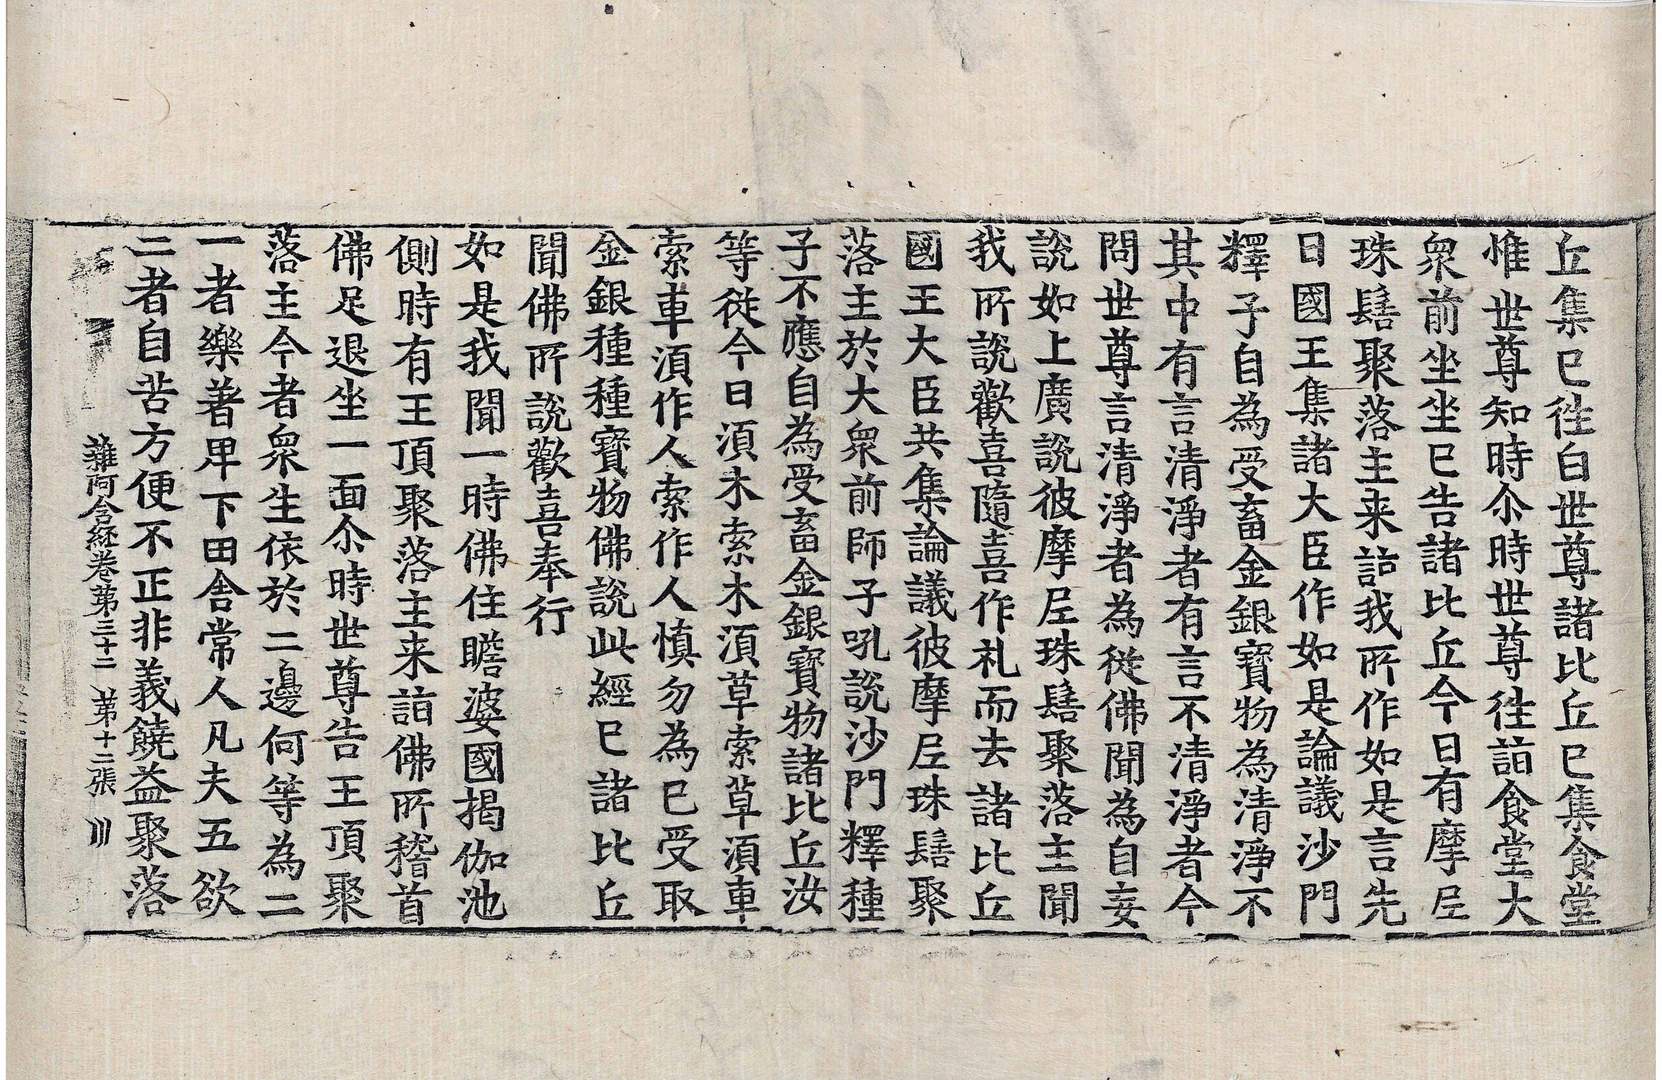 丘集已徃白世尊諸比丘已集食堂
惟世尊知時尒時世尊徃詣食堂大
衆前坐坐已告諸比丘今日有摩尼
珠髻聚落主来詣我所作如是言先
日國王集諸大臣作如是論議沙門
釋子自為受畜金銀寶物為清淨不
其中有言清淨者有言不清淨者今
問世尊言清淨者為從佛聞為自妄
說如上廣說彼摩尼珠髻聚落主聞
我所說歡喜隨喜作礼而去諸比丘
國王大臣共集論議彼摩尼珠髻聚
落主於大衆前師子吼說沙門釋種
子不應自為受畜金銀寶物諸比丘汝
等從今日湏木索木湏草索草湏車
索車湏作人索作人慎勿為已受取
金銀種種寶物佛說此經已諸比丘
聞佛所說歡喜奉行
如是我聞一時佛住瞻婆國揭伽池
側時有王頂聚落主来詣佛所稽首
佛足退坐一面尒時世尊告王頂聚
落主今者衆生依於二邊何等為二
一者樂著卑下田舍常人凡夫五欲
二者自苦方便不正非義饒益聚落
雜阿含經卷第三十二 第十二張